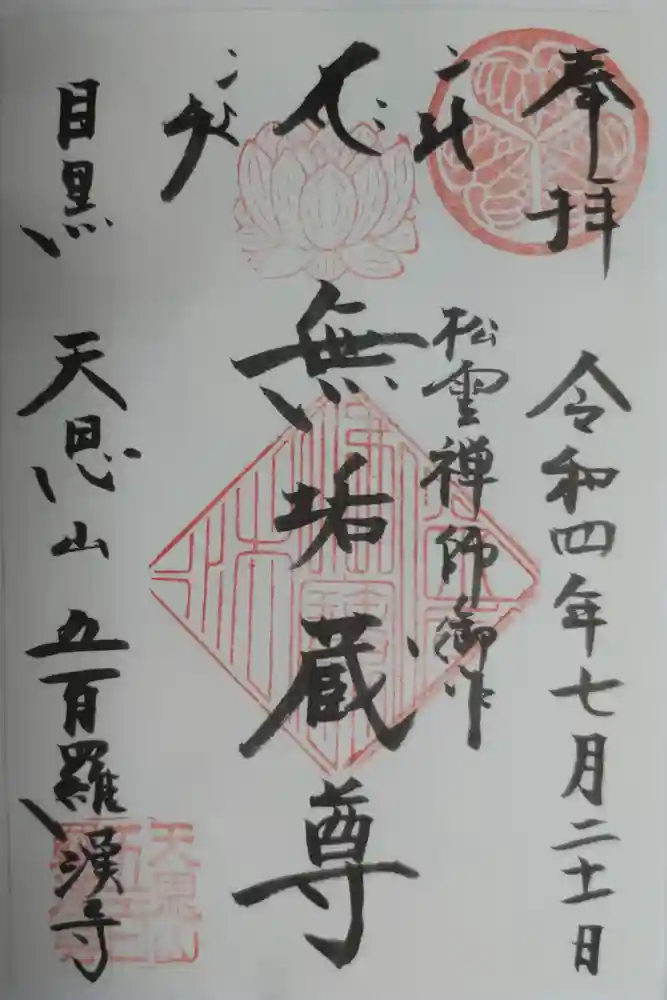 奉拝
令和四年七月二十一日
松雲禅師御作
無垢蔵尊
目黒 天恩山 五百羅漢寺
天恩山